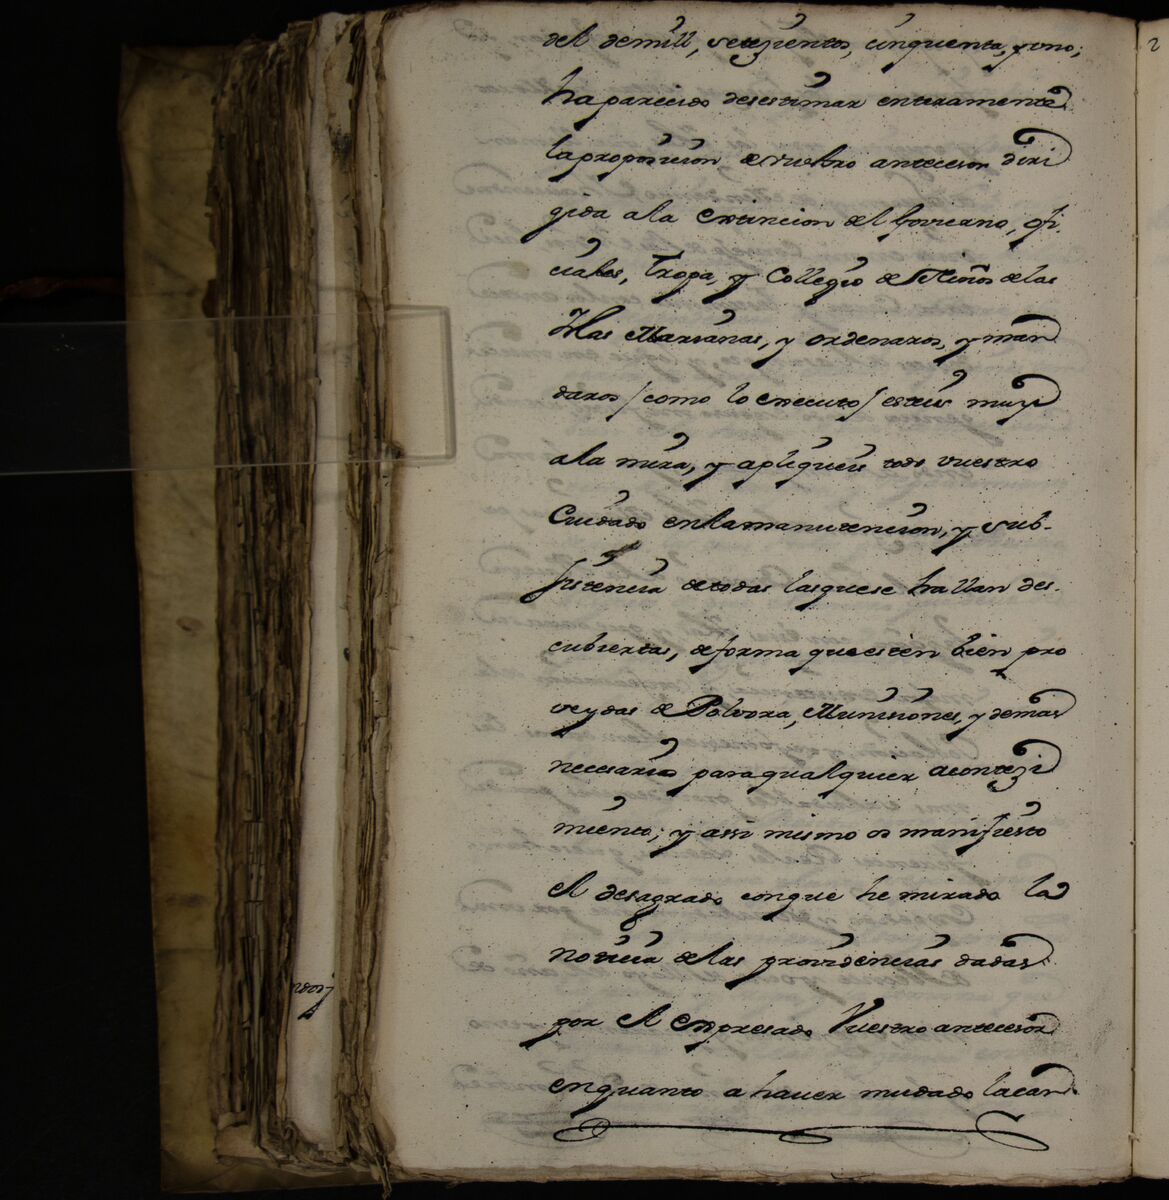 del de mill, setezientos, cinquenta, y uno;
ha parecido desestimar enteramente
la proposicion de vuestro antecesor diri
gida a la extincion del Govierno, ofi-
ciales, Tropa, y Collegio de Niños de las
Yslas Marianas, y ordenaros, y man
daros / como lo executo / esteis muy
a la mira, y apliqueis todo vuestro
Cuidado en la manutencion, y sub-
sistencia de todas las que se hallan des-
cubiertas, de forma que esten bien pro
veydas de Polvora, Municiones, y demas
necesario para qualquier acontezi
miento; y assi mismo os manifiesto
el desagrado con que he mirado la
noticia de las providencias dadas
por el expresado Vuestro antecesor
en quanto a haver mudado la can
2